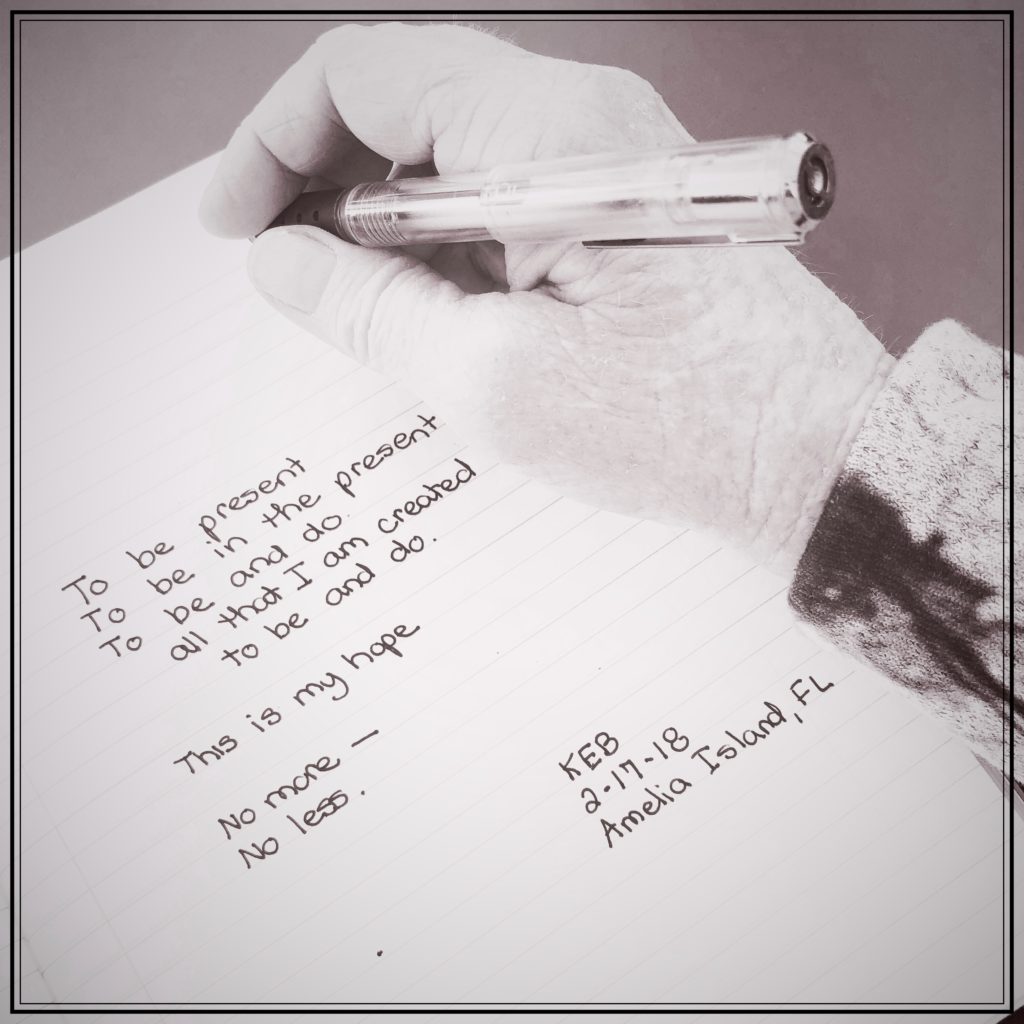 To be present
To be in the present
To be and do
all that I am created
to be and do.
This is my hope
No more —
No less.
KEB
2-17-18
Amelia Island, FL